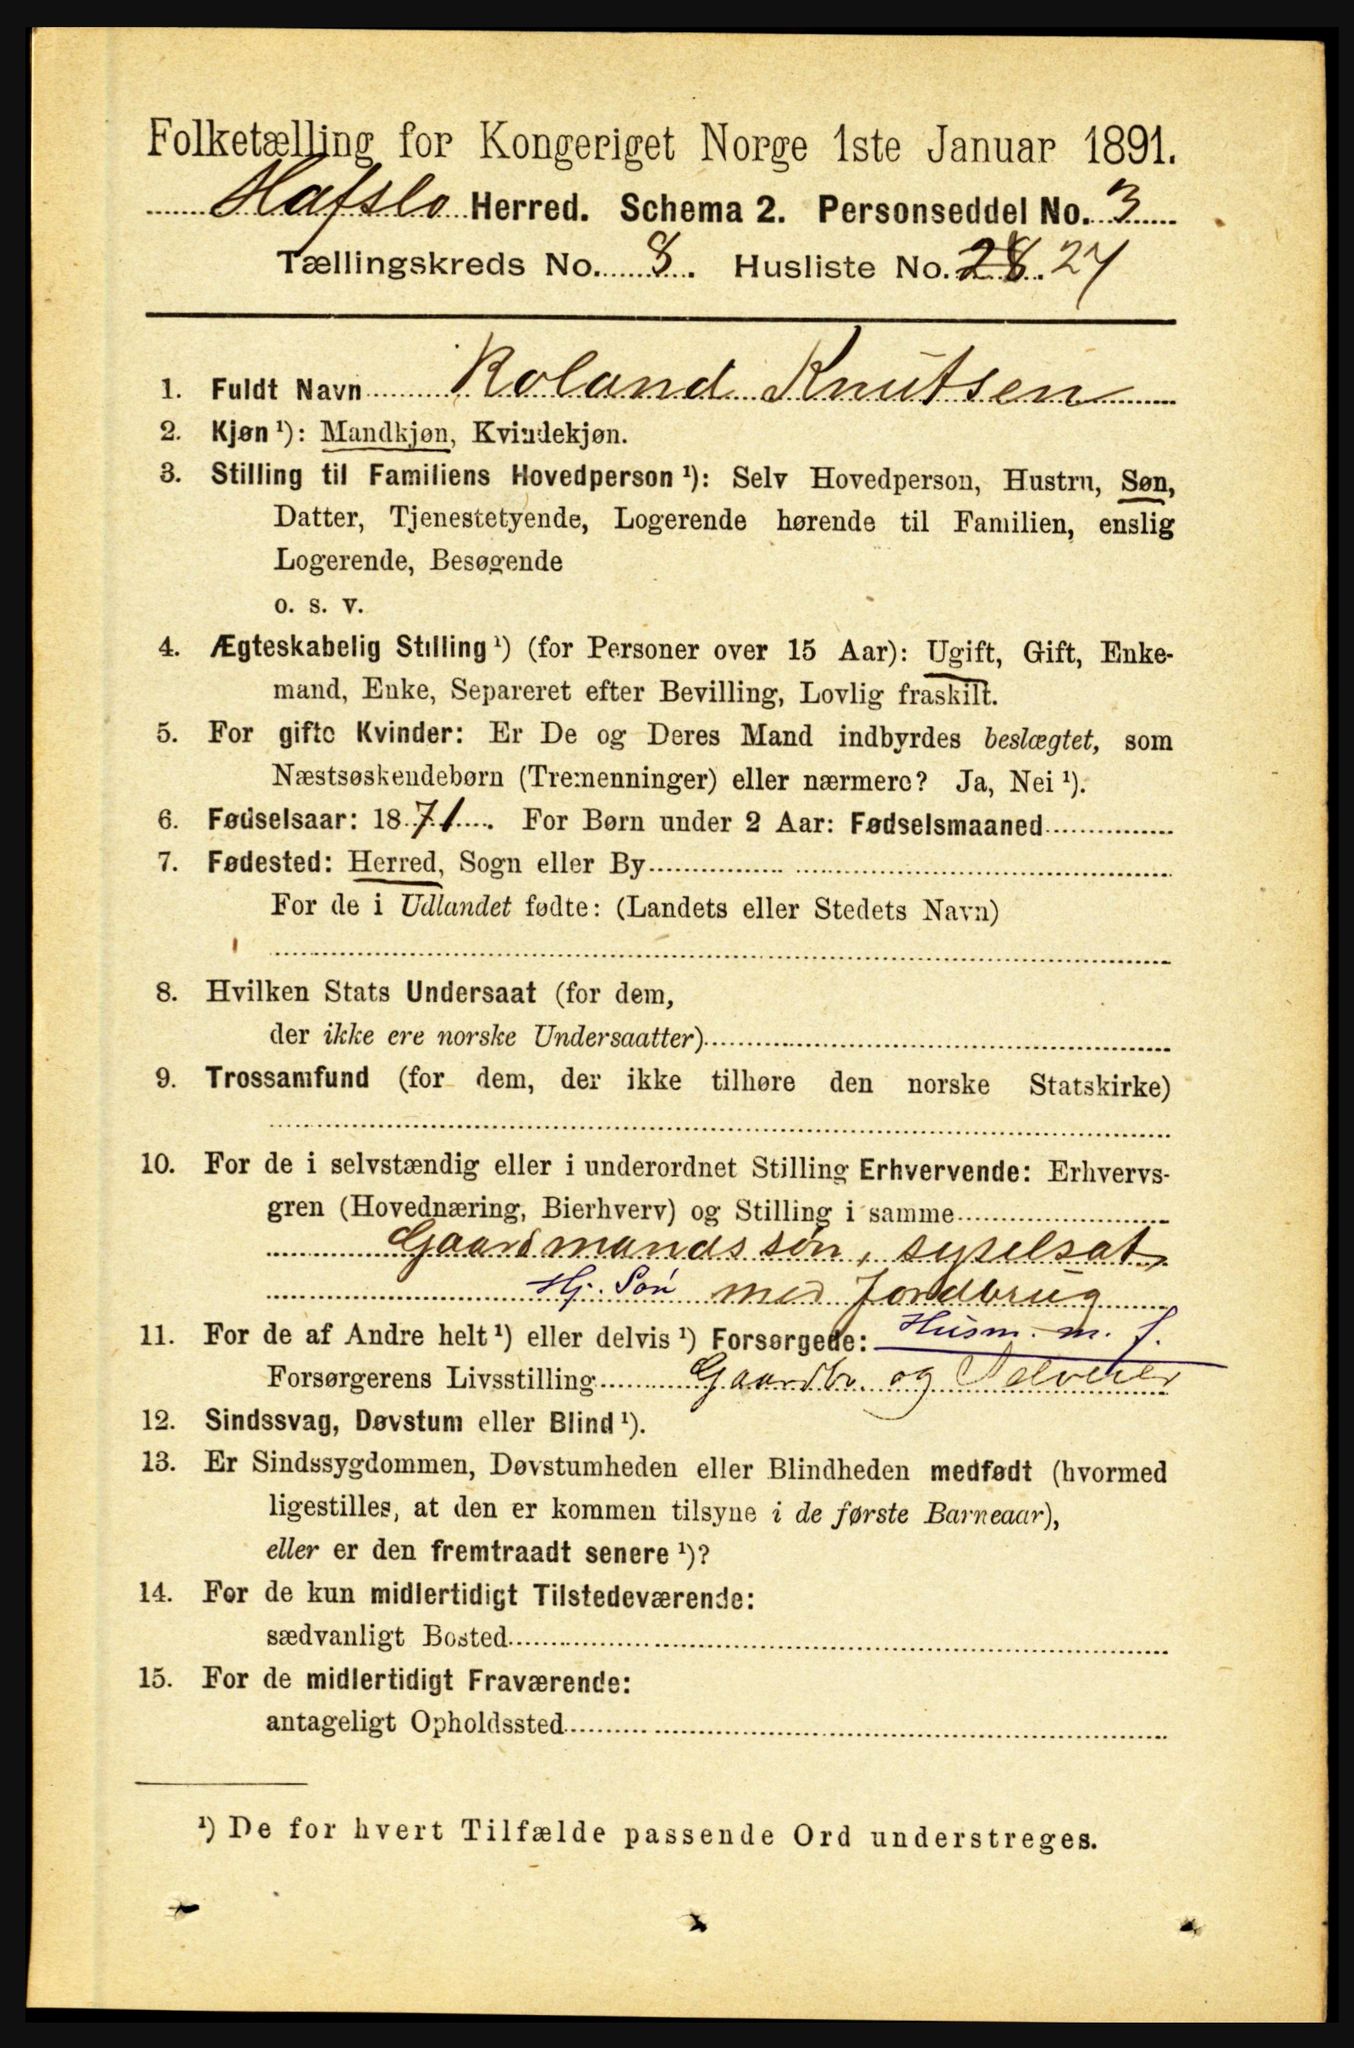 Folketælling for Kongeriget Norge 1ste Januar 1891.
Hafslo Herred. Schema 2. Personseddel No. 3
Tællingskreds No. 8. Husliste No. 28. 27
1. Fuldt Navn Roland Knutsen
2. Kjøn ¹): Mandkjøn, Kvindekjøn.
3. Stilling til Familiens Hovedperson ¹): Selv Hovedperson, Hustru, Søn,
Datter, Tjenestetyende, Logerende hørende til Familien, enslig
Logerende, Besøgende
o. s. v.
4. Ægteskabelig Stilling ¹) (for Personer over 15 Aar): Ugift, Gift, Enke-
mand, Enke, Separeret efter Bevilling, Lovlig fraskilt.
5. For gifte Kvinder: Er De og Deres Mand indbyrdes beslægtet, som
Næstsøskendebørn (Tremenninger) eller nærmere? Ja, Nei ¹).
6. Fødselsaar: 1871. For Børn under 2 Aar: Fødselsmaaned
7. Fødested: Herred, Sogn eller By
For de i Udlandet fødte: (Landets eller Stedets Navn)
8. Hvilken Stats Undersaat (for dem,
der ikke ere norske Undersaatter)
9. Trossamfund (for dem, der ikke tilhøre den norske Statskirke)
10. For de i selvstændig eller i underordnet Stilling Erhvervende: Erhvervs-
gren (Hovednæring, Bierhverv) og Stilling i samme
Gaardmandssøn, syselsat
Hj. Søn med Jordbrug
11. For de af Andre helt ¹) eller delvis ¹) Forsørgede: Husm. m. J.
Forsørgerens Livsstilling Gaardbr. og Selveier
12. Sindssvag, Døvstum eller Blind ¹).
13. Er Sindssygdommen, Døvstumheden eller Blindheden medfødt (hvormed
ligestilles, at den er kommen tilsyne i de første Barneaar),
eller er den fremtraadt senere ¹)?
14. For de kun midlertidigt Tilstedeværende:
sædvanligt Bosted
15. For de midlertidigt Fraværende:
antageligt Opholdssted
¹) De for hvert Tilfælde passende Ord understreges.